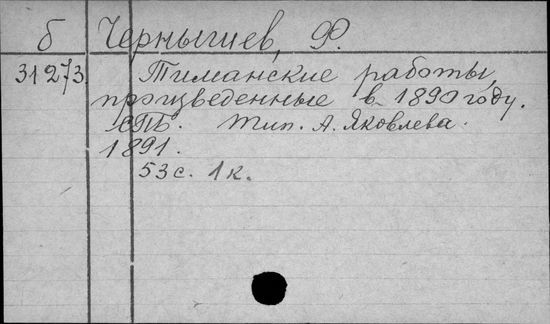 б Чернышев, Ф.
31273. Тиманские работы,
произведенные в 1890 году.
СПБ. Тип. А. Яковлева.
1891.
53 с. 1 к.